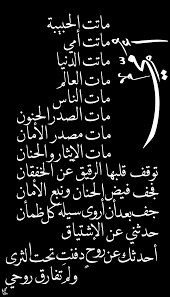 ماتت الحبيبة
ماتت أمي
ماتت الدنيا
مات العالم
مات الناس
مات الصدر الحنون
مات مصدر الأمان
مات الإيثار والحنان
توقف قلبها الرقيق عن الخفقان
فجف فيض الحنان ونبع الأمان
جف بعد أن أروى سيله كل ظمأن
حدثني عن الإشتياق
أحدثك عن روح دفنت تحت الثرى
ولم تفارق روحي